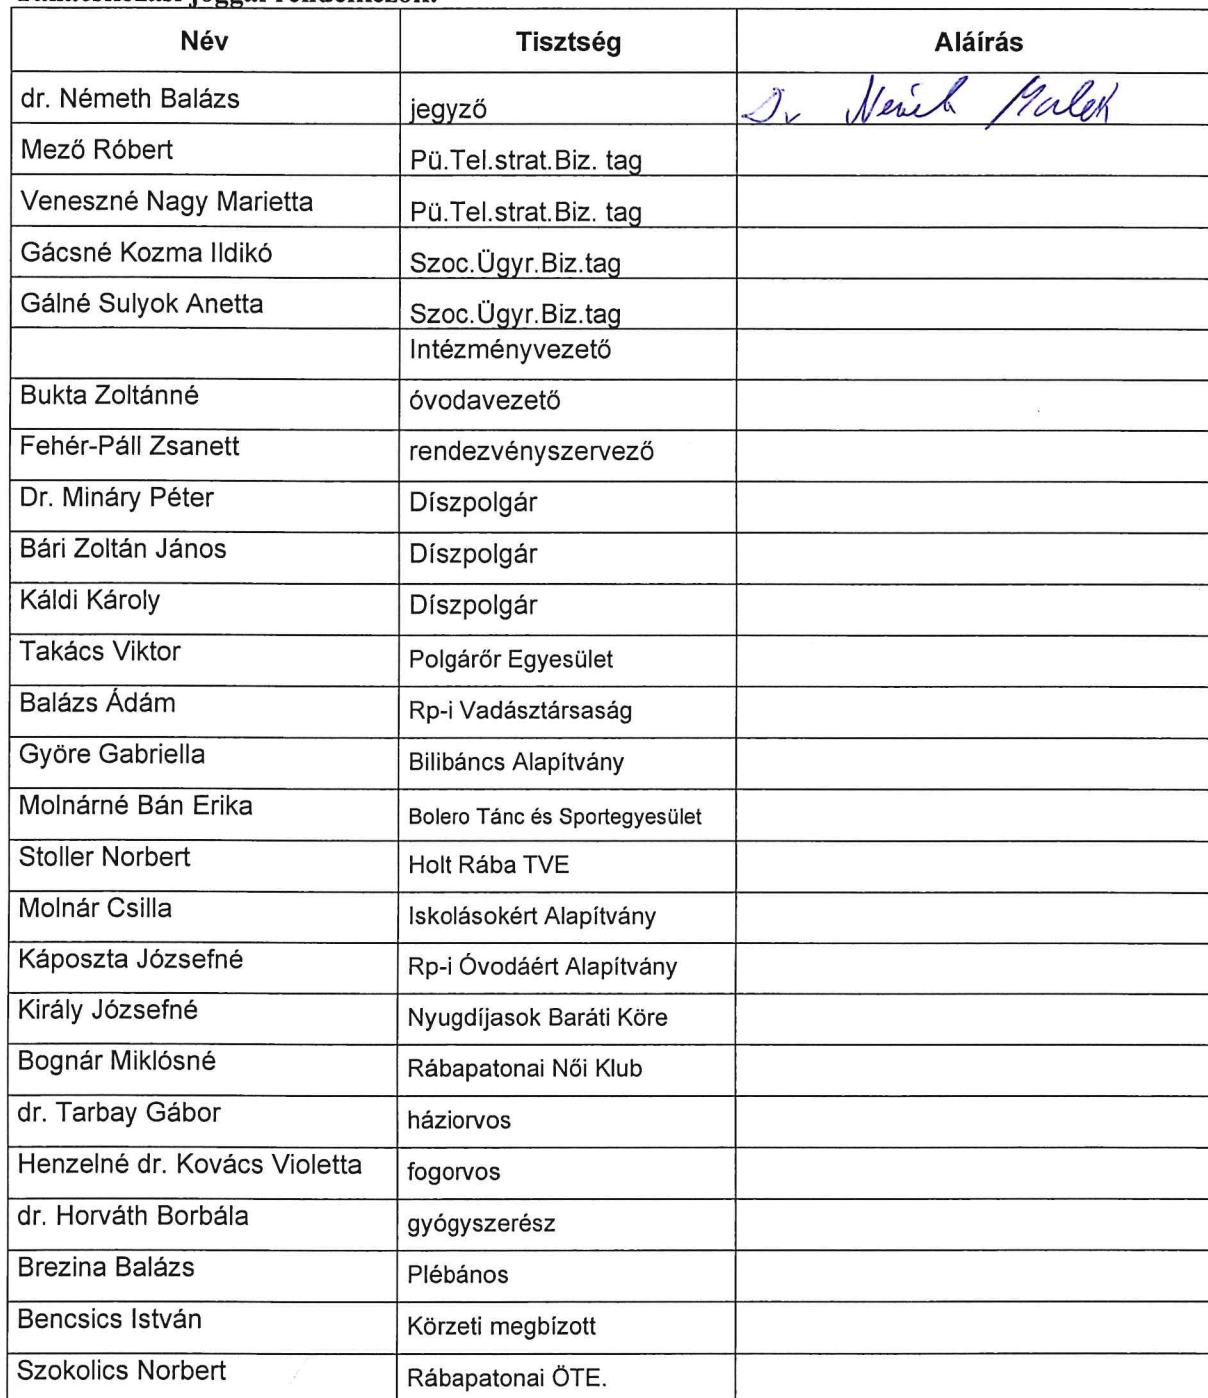 Név Tisztség Aláírás
dr. Németh Balázs jegyző Dr
Mező Róbert Pü.Tel.strat.Biz. tag
Veneszné Nagy Marietta Pü.Tel.strat.Biz. tag
Gácsné Kozma Ildikó Szoc.Ügyr.Biz.tag
Gálné Sulyok Anetta Szoc.Ügyr.Biz.tag
Intézményvezető
Bukta Zoltánné óvodavezető
Fehér-Páll Zsanett rendezvényszervező
Dr. Mináry Péter Díszpolgár
Bári Zoltán János Díszpolgár
Káldi Károly Díszpolgár
Takács Viktor Polgárőr Egyesület
Balázs Ádám Rp-i Vadásztársaság
Györe Gabriella Bilibáncs Alapítvány
Molnárné Bán Erika Bolero Tánc és Sportegyesület
Stoller Norbert Holt Rába TVE
Molnár Csilla Iskolásokért Alapítvány
Káposzta Józsefné Rp-i Óvodáért Alapítvány
Király Józsefné Nyugdíjasok Baráti Köre
Bognár Miklósné Rábapatonai Női Klub
dr. Tarbay Gábor háziorvos
Henzelné dr. Kovács Violetta fogorvos
dr. Horváth Borbála gyógyszerész
Brezina Balázs Plébános
Bencsics István Körzeti megbízott
Szokolics Norbert Rábapatonai ÖTE.